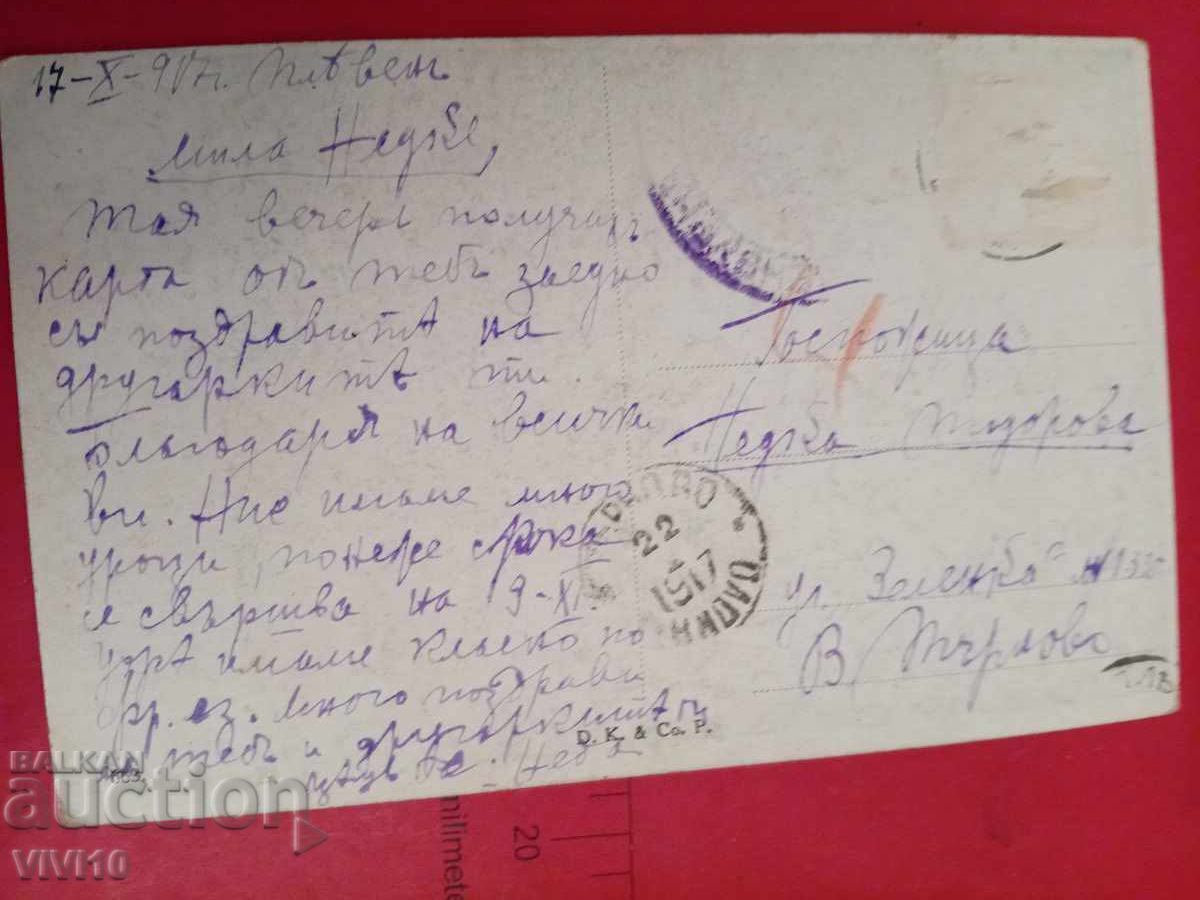 17-X-917г. Плѣвен
Мила Недке,
Тая вечерь получихъ
карта отъ тебъ заедно
съ поздравитѣ на
другаркитѣ ти.
Благодаря на всички
ви. Ние имаме много
уроци, понеже срока
се свършва на 9-XI.
утрѣ имаме класно по
фр. ез. Много поздрави
на тебъ и другаркитѣ ти
Нева
Госпожица
Недка Тодорова
ул. Зеленка №
В. Търново
22
1917
D. K. & Co. P.
BALKAN
auction
VIVI10
20
milimete